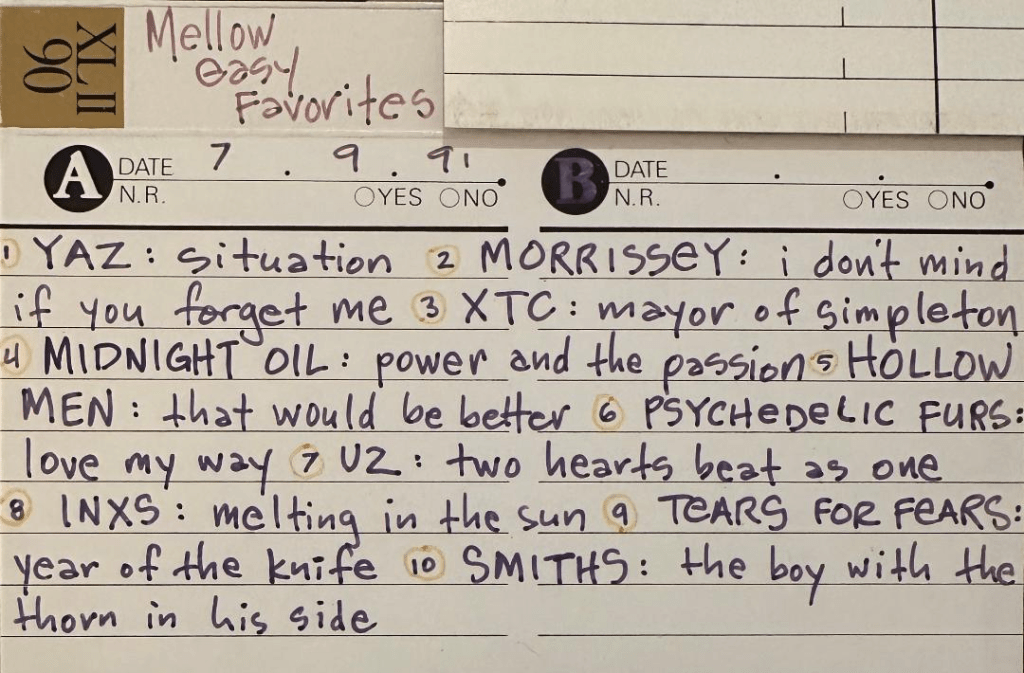 XLII 90
Mellow
easy
Favorites
A DATE 7 . 9 . 91
N.R. YES NO
B DATE . .
N.R. YES NO
1 YAZ: situation 2 MORRISSEY: i don't mind
if you forget me 3 XTC: mayor of simpleton
4 MIDNIGHT OIL: power and the passion 5 HOLLOW
MEN: that would be better 6 PSYCHEDELIC FURS:
love my way 7 U2: two hearts beat as one
8 INXS: melting in the sun 9 TEARS FOR FEARS:
year of the knife 10 SMITHS: the boy with the
thorn in his side